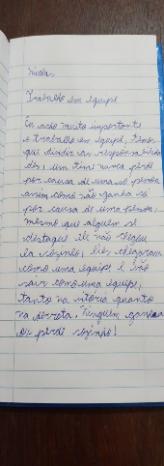 Nicolas
Trabalho em equipe
Eu acho muito importante
o trabalho em equipe, temos
que dividir as responsabilida
des, um time nunca perde
por causa de uma só pessoa
assim como não ganha só
por causa de uma pessoa,
mesmo que alguém se
destaque ele não chegou
lá sozinho, eles chegaram
como uma equipe e irão
sair como uma equipe,
tanto na vitória quanto
na derrota. Ninguém ganha
ou perde sozinho!